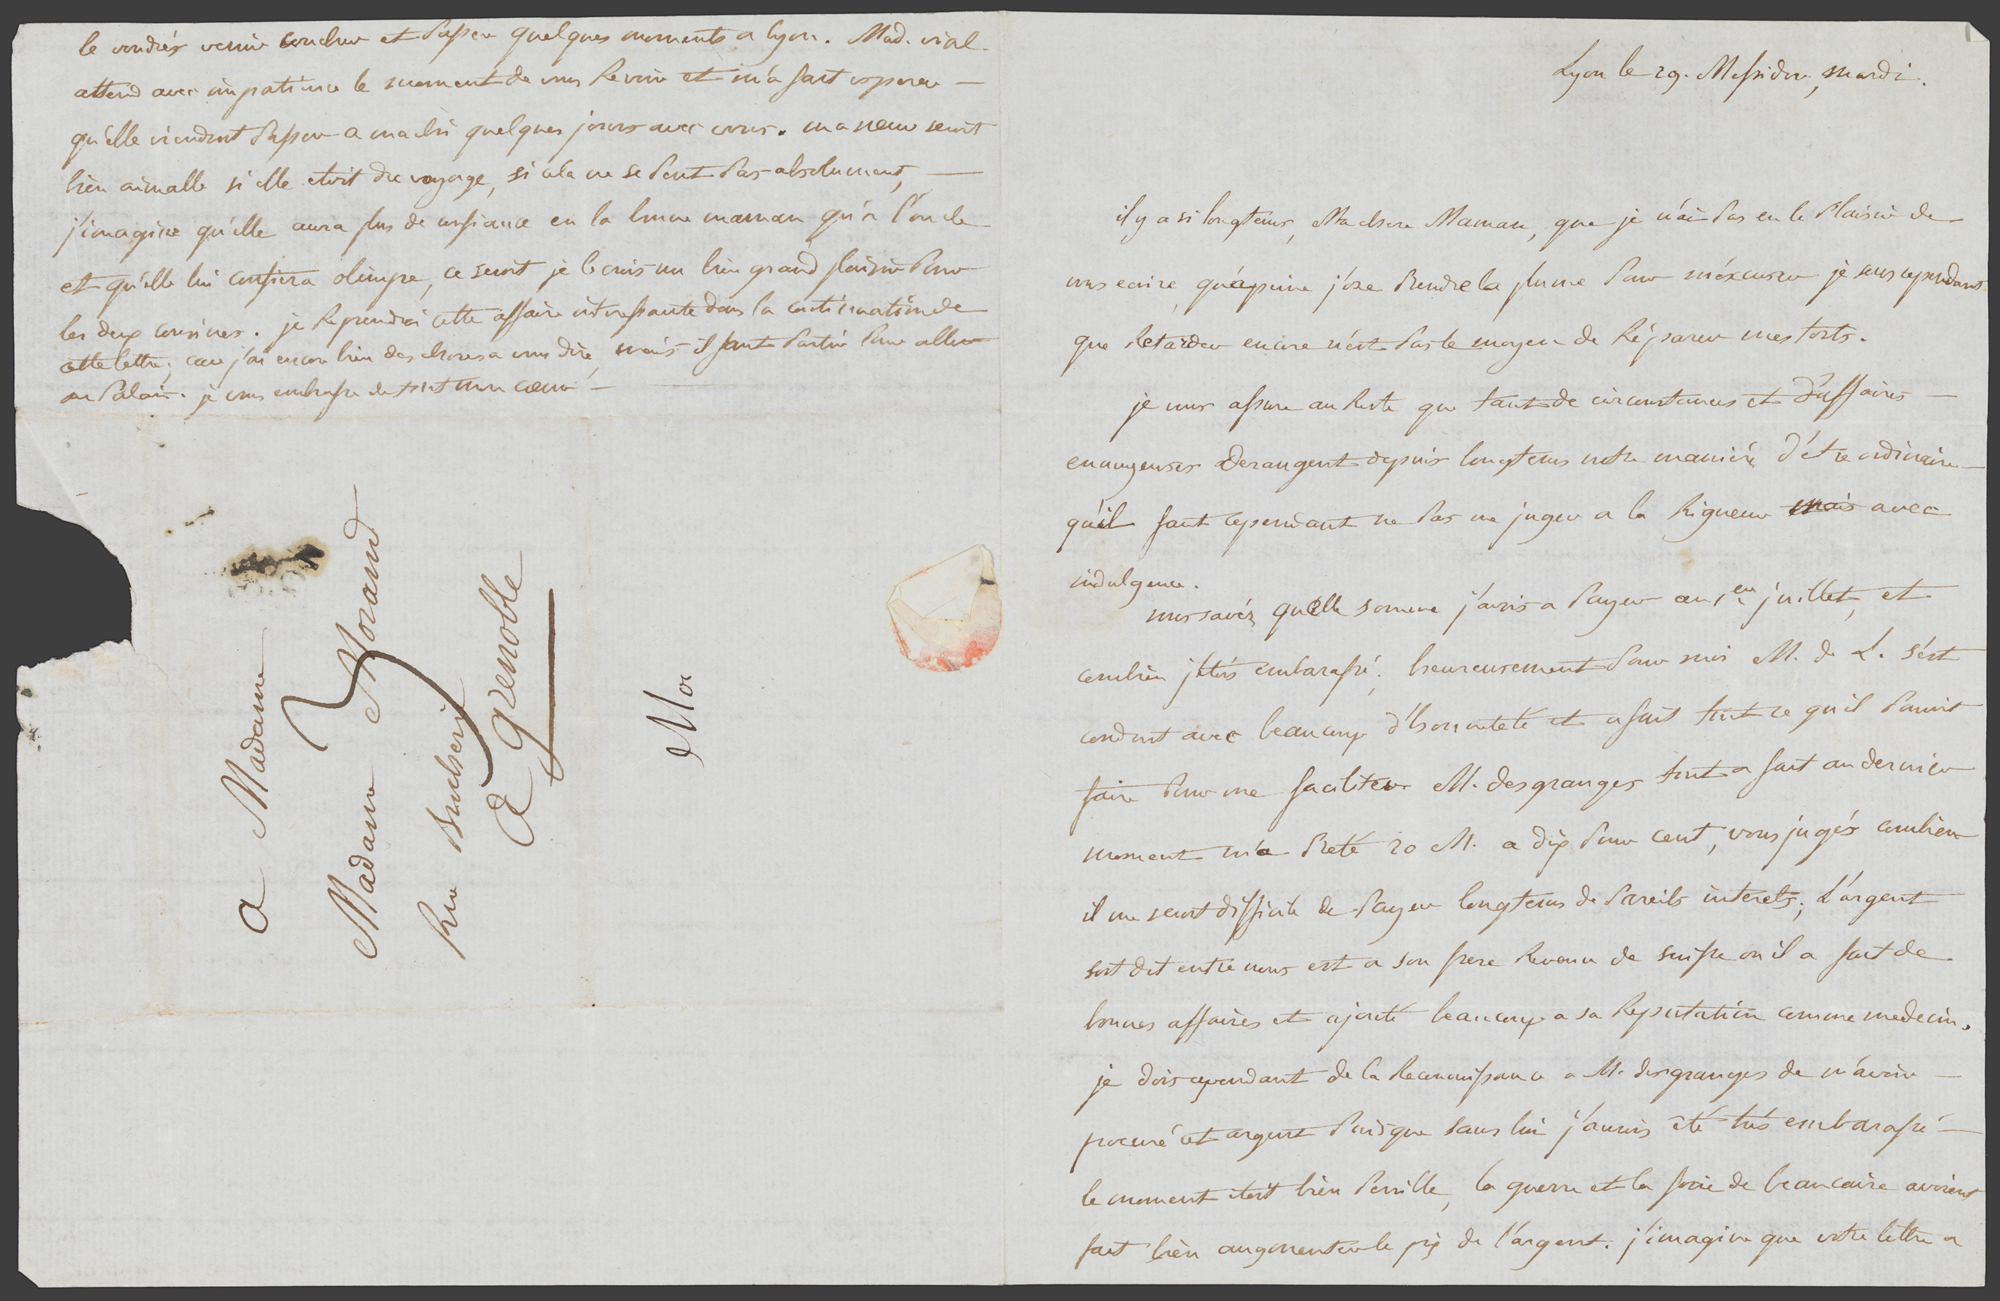 le voudrés venir coucher et passer quelques moments a Lyon. Mad. vial
attend avec impatience le moment de vous Revoir et m'a fait esperer —
qu'elle viendroit passer a quelques jours avec vous. ma seroit
bien aimable si elle etoit du voyage, si cela ne se peut pas absolument, —
j'imagine qu'elle aura plus de confiance en la bonne maman qu'a l'oncle
et qu'elle lui confiera olimpe, ce seroit je le crois un bien grand plaisir pour
les deux cousines. je Reprendrai cette affaire interessante dans la continuation de
cette lettre, car j'ai encore bien des choses a vous dire, mais il faut partir pour aller
au Palais. je vous embrasse de tout mon cœur —
a Madame
Madame Morand
Rue Bucherie
a grenoble
Lyon le 29. Messidor, mardi.
il y a si longtems, Ma chere Maman, que je n'ai pas eu le plaisir de
vous ecrire, qu'apeine j'ose prendre la plume pour m'éxcuser je sens cependant
que Retarder encore n'est pas le moyen de Réparer mes torts.
je vous assure au Reste que tant de circonstances et d'affaires —
ennuyeuses derangent depuis longtems notre maniere d'étre ordinaire —
qu'il faut cependant ne pas me juger a la Rigueur mais avec
indulgence.
vous savés quelle somme j'avois a payer au 1er juillet, et
combien j'etois embarassé, heureusement pour moi M. de L. s'est
conduit avec beaucoup d'honneteté et a fait tout ce qu'il pouvoit
faire pour me faciliter. M. desgranges tout a fait au dernier
moment m'a preté 20 M. a dix pour cent, vous jugés combien
il me seroit difficile de payer longtems de pareils interets; L'argent
soit dit entre nous est a son frere Revenu de suisse ou il a fait de
bonnes affaires et ajouté beaucoup a sa Reputation comme medecin.
je dois cependant de la Reconnoissance a M. desgranges de m'avoir —
procuré cet argent puisque sans lui j'aurois été trés embarassé —
le moment étoit bien penible, la guerre et la foire de beaucaire avoient
fait bien augmenter le prix de l'argent. j'imagine que votre lettre a